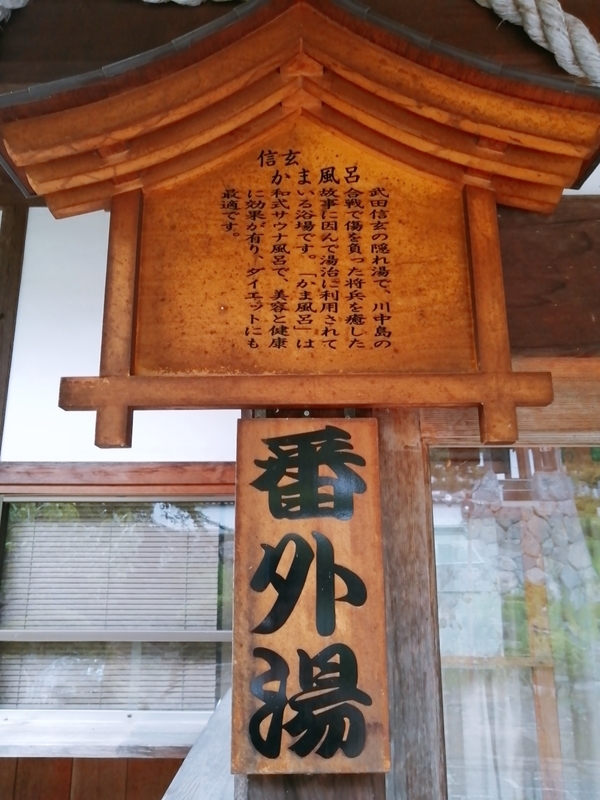 信玄
かま風呂
武田信玄の隠れ湯で、川中島の
合戦で傷を負った将兵を癒した
故事に因んで湯治に利用されて
いる浴場です。「かま風呂」は
和式サウナ風呂で、美容と健康
に効果が有り、ダイエットにも
最適です。
番外湯